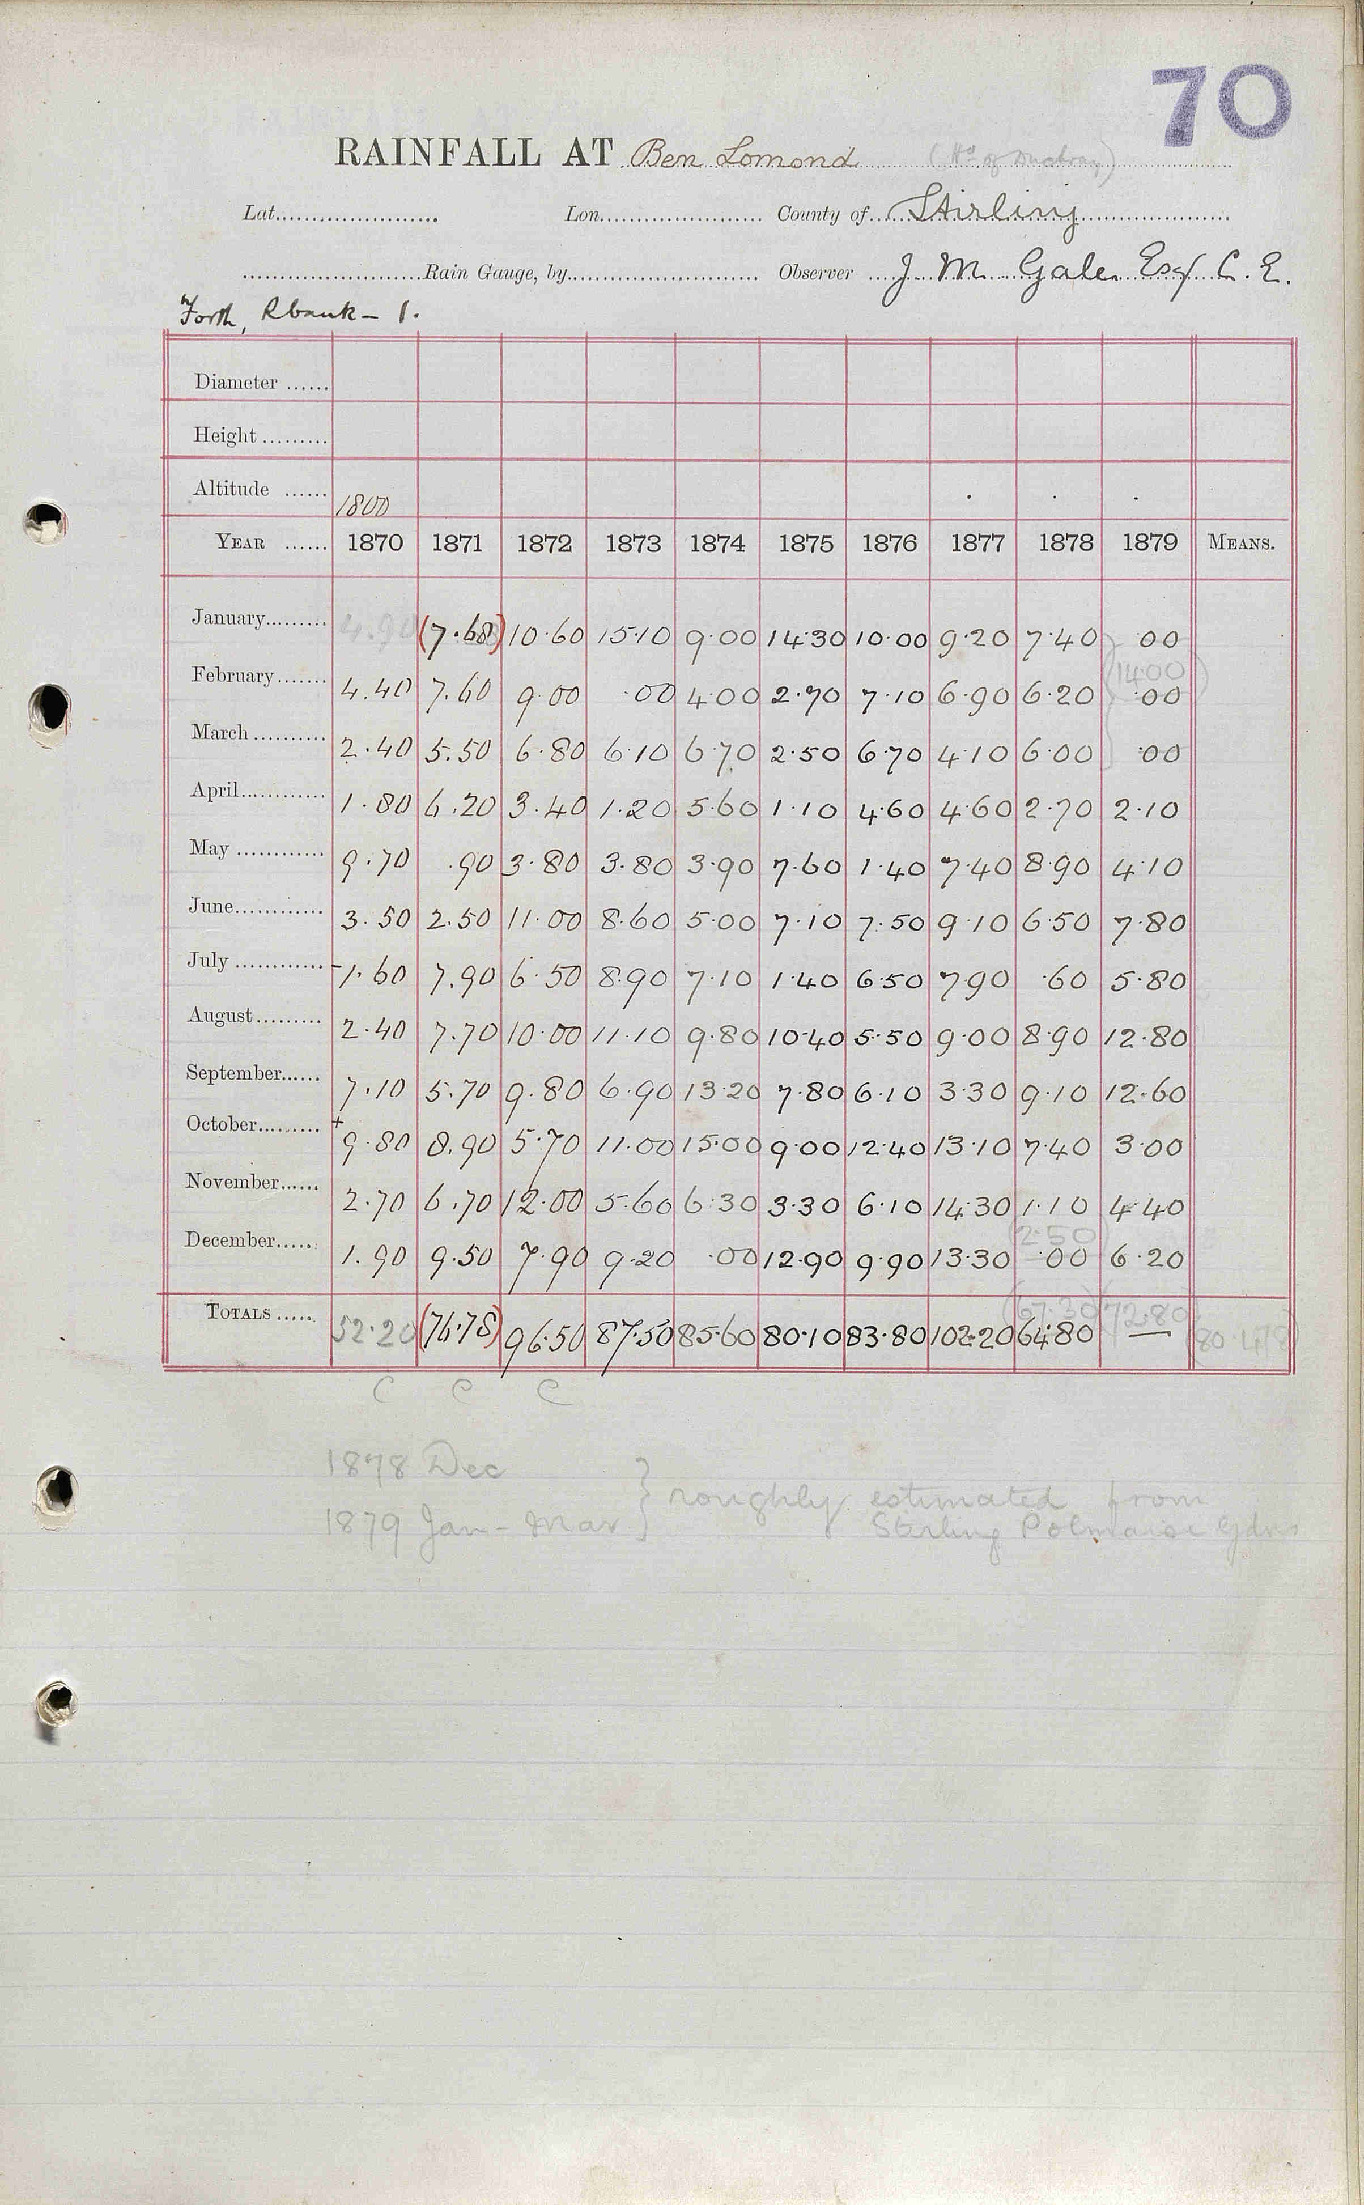 70
RAINFALL AT Ben Lomond (Hd of Duchray)
Lat...................... Lon...................... County of Stirling
Rain Gauge, by...................... Observer J M Gale Esq C. E.
Forth, Rbank - 1.
Diameter ......
Height .........
Altitude ...... 1800
YEAR ...... 1870 1871 1872 1873 1874 1875 1876 1877 1878 1879 MEANS.
January......... 4.90 (7.68) 10.60 15.10 9.00 14.30 10.00 9.20 7.40 .00
(14.00)
February....... 4.40 7.60 9.00 .00 4.00 2.70 7.10 6.90 6.20 .00
March .......... 2.40 5.50 6.80 6.10 6.70 2.50 6.70 4.10 6.00 .00
April............ 1.80 6.20 3.40 1.20 5.60 1.10 4.60 4.60 2.70 2.10
May ............ 9.70 .90 3.80 3.80 3.90 7.60 1.40 7.40 8.90 4.10
June............ 3.50 2.50 11.00 8.60 5.00 7.10 7.50 9.10 6.50 7.80
July ............ 1.60 7.90 6.50 8.90 7.10 1.40 6.50 7.90 .60 5.80
August......... 2.40 7.70 10.00 11.10 9.80 10.40 5.50 9.00 8.90 12.80
September...... 7.10 5.70 9.80 6.90 13.20 7.80 6.10 3.30 9.10 12.60
October......... + 9.80 8.90 5.70 11.00 15.00 9.00 12.40 13.10 7.40 3.00
November...... 2.70 6.70 12.00 5.60 6.30 3.30 6.10 14.30 1.10 4.40
(2.50)
December...... 1.90 9.50 7.90 9.20 .00 12.90 9.90 13.30 .00 6.20
(67.30) (72.80)
TOTALS ..... 52.20 (76.78) 96.50 87.50 85.60 80.10 83.80 102.20 64.80 — (80.478)
C C C
1878 Dec
1879 Jan - Mar } roughly estimated from
Stirling Polmaise Gdns